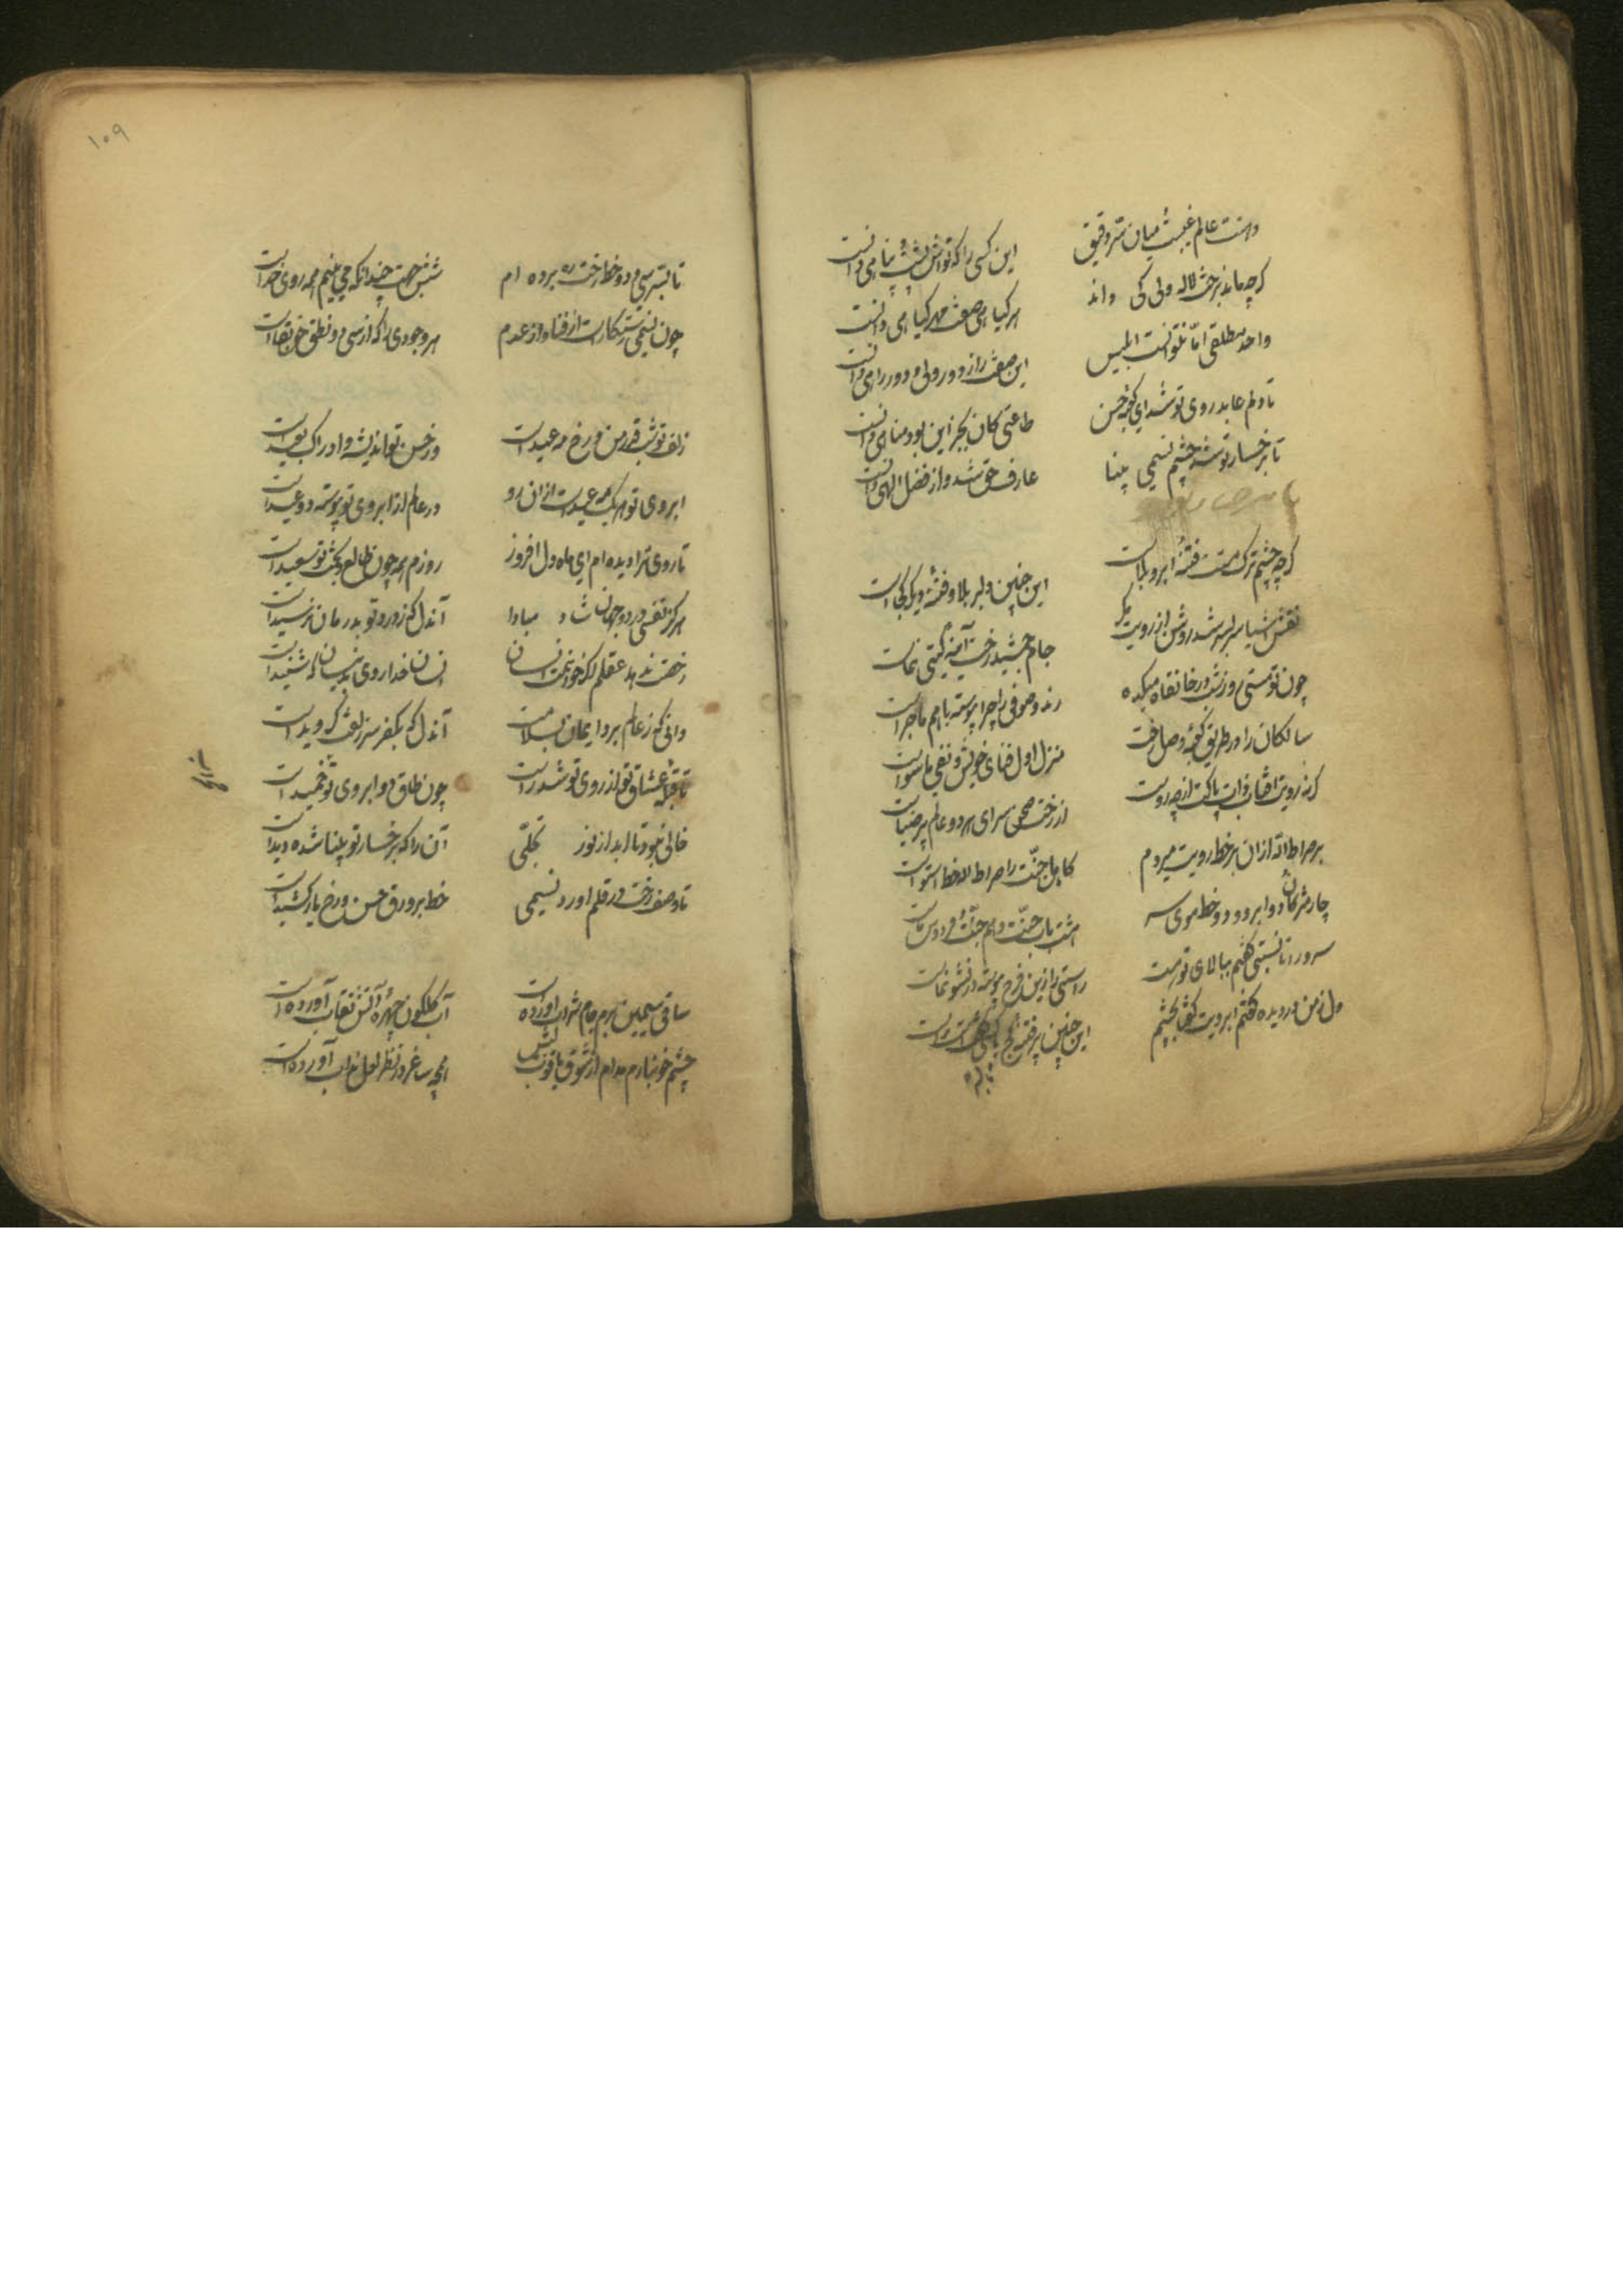 دانست عالم غیبست میان سر دقیق این کسی را که تواش پشت پناهی دانست
گرچه ماند برخت لاله ولی کی داند هر گیاهی صفت مهر گیاهی دانست
واحد مطلقی اما نتوانست ابلیس این صفت را ز دو رویی و دو راهی دانست
تا دلم عابد روی تو شد ای کعبه حسن طاعتی کان بجز این بود مناهی دانست
تا برخسار تو شد چشم نسیمی بینا عارف حق شد و از فضل الهی دانست
گرچه چشم ترک مستت فتنه و ابرو بلاست این چنین دلبر بلا و فتنه دیگر کجاست
نقش اشیا سربسر شد روشن از رویت مگر جام جمشید رخت آیینه گیتی نماست
چون تو مستی روز و شب در خانقاه و میکده رند و صوفی را چرا پیوسته با هم ماجراست
سالکان را در طریق کعبه وصل رخت منزل اول فنای خویش و نفی ماسواست
گرنه رویت آفتاب ذات پاکت از چه روست از رخت صحن سرای هر دو عالم پر ضیاست
بر صراط الله از آن بر خط رویت میروم کاهل جنت را صراط الله خط استواست
چار مژگان دو ابرو و دو خط موی سر هشت باب جنت و هم جنت فردوس ماست
سرو را تا نسبتی گفتم ببالای تو هست راستی را زین فرح پیوسته در نشو و نماست
دل ز من دزدیده گفتم ابرویت گفتا بچشم این چنین پر فتنه کج با کسی هست راست
تا بسر
۱۰۹
تا بسر سی و دو خط رخت ره برده ام شش جهت چندانکه می بینم همه روی خداست
چون نسیمی رستگارست از فنا و از عدم هر وجودی را که از سی و دو نطق حق بقاست
زلف تو شب قدر من و رخ مه عیدست در حسن تو اندیشه و ادراک بعیدست
ابروی تو هر یک مه عیدست از آن رو در عالم از ابروی تو پیوسته دو عیدست
تا روی ترا دیده ام ای ماه دل افروز روزم همه چون طالع و بخت تو سعیدست
هرگز نفسی در دو جهان شاد مبادا آن دل که ز درد تو بدرمان نرسیدست
رخصت ندهد عقلم اگر خوانمت انسان انسان خدا روی بدینسان که شنیدست
دانی که ز عالم برد ایمان بسلامت آن دل که بکفر سر زلفت گرویدست
تا قبله عشاق تو از روی تو شد راست چون طاق دو ابروی تو خمیدست
خالی نبود تا ابد از نور تجلی آن را که برخسار تو بینا شده دیدست
تا وصف رخت در قلم آورد نسیمی خط بر ورق حسن و رخ یار کشیدست
ساقی سیمین برم جام شراب آورده است آب گلگون چهره آتش نقاب آورده است
چشم خونبارم مدام از شوق یاقوت لبش همچو ساغر در نظر لعل مذاب آورده است